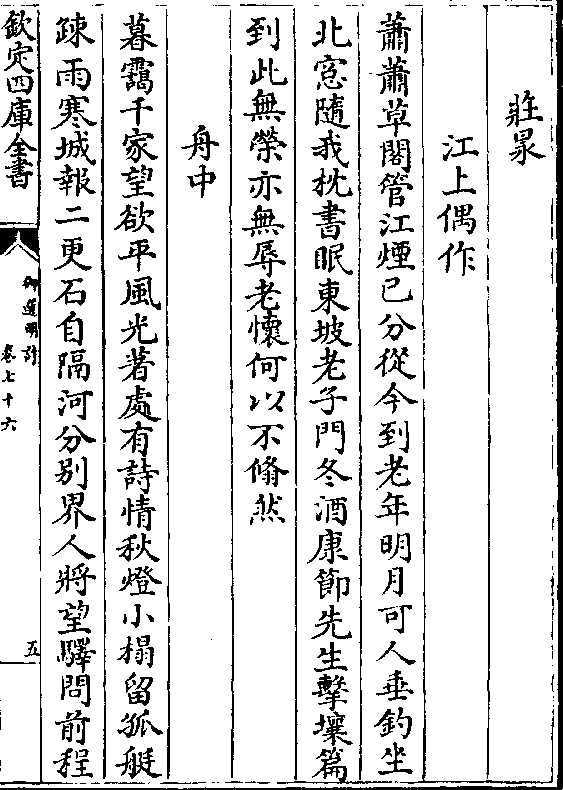 莊㫤
江上偶作
蕭蕭草閣管江煙已分從今到老年明月可人垂釣坐
北窓隨我枕書眠東坡老子門冬酒康節先生擊壤篇
到此無榮亦無辱老懷何以不翛然
舟中
暮靄千家望欲平風光著處有詩情秋燈小榻留孤艇
疎雨寒城報二更石自隔河分别界人將望驛問前程
欽定四庫全書
御選明詩
卷七十六
五